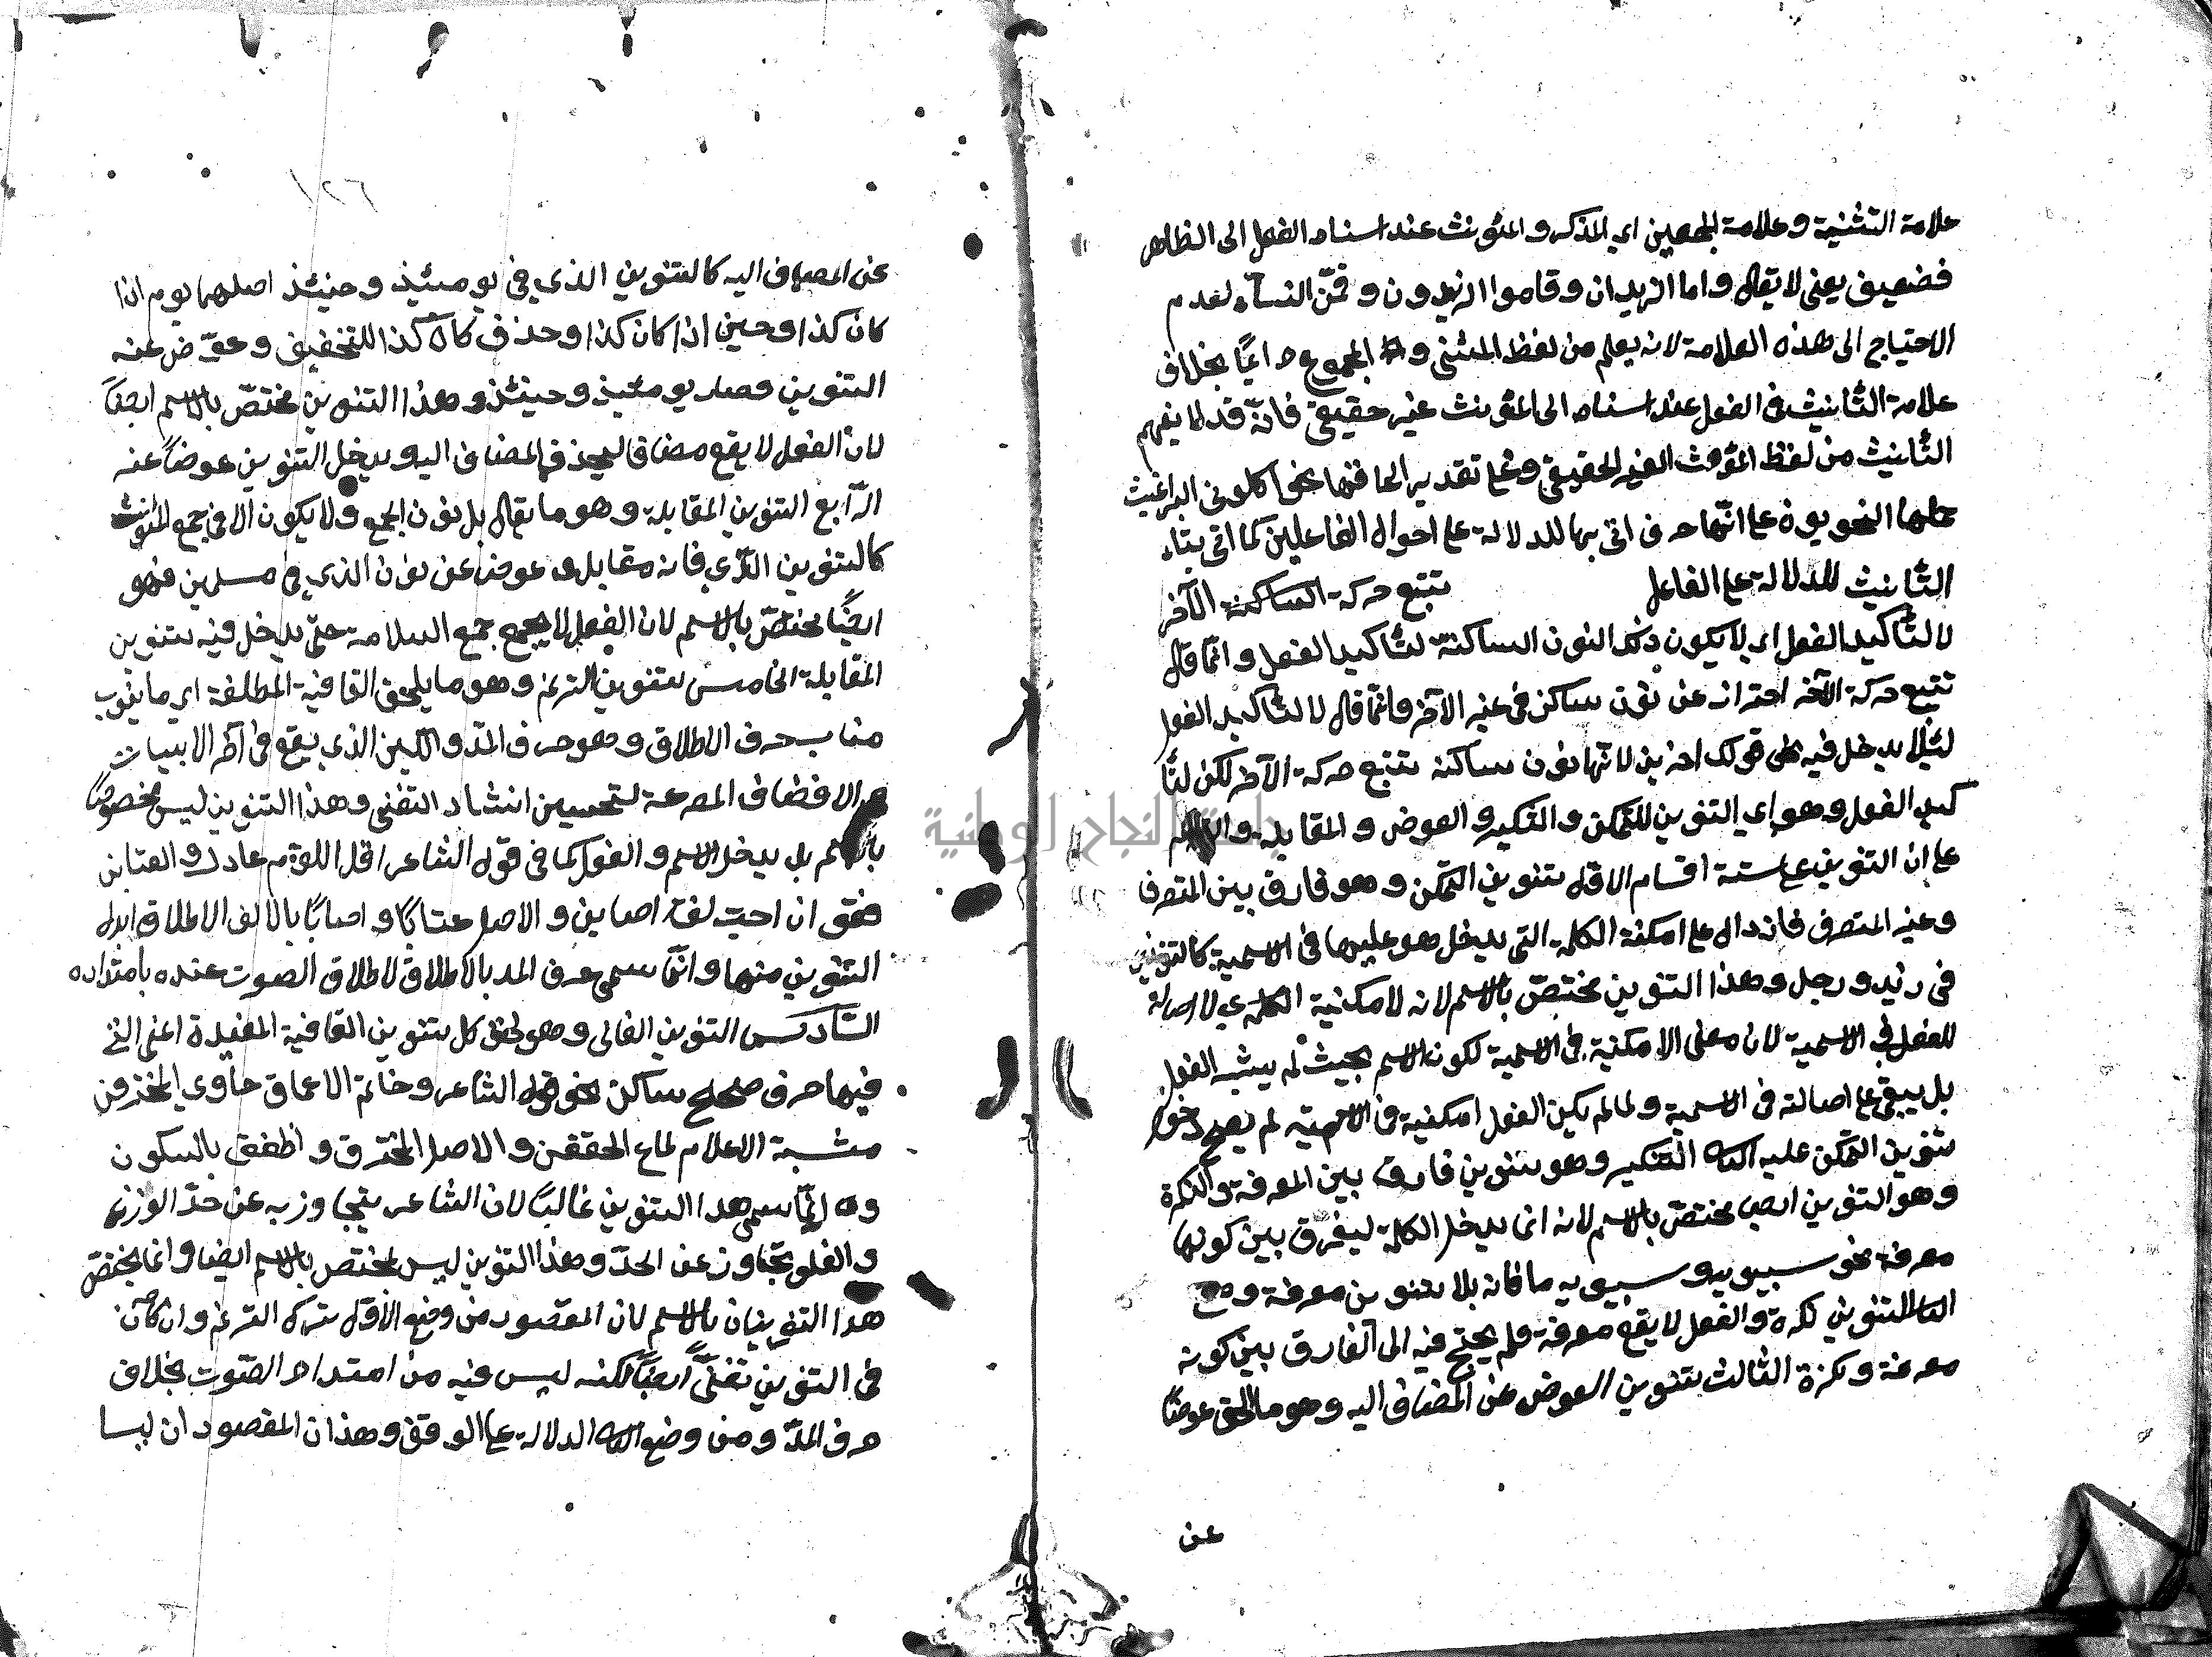 علامة التثنية وعلامة الجمعين اي المذكر والمؤنث عند اسناد الفعل الى الظاهر
فضعيف يعنى لا يقال واما الزيدان وقاموا الزيدون وقمن النسآء لعدم
الاحتياج الى هذه العلامة لانه يعلم من لفظ المثنى والمجموع دايمًا بخلاف
علامة التأنيث فى الفعل عند اسناده الى المؤنث غير حقيقي فانّه قد لما يفهم
التأنيث من لفظ المؤنث الغير الحقيقي وعلى تقدير الحاقها نحو اكلونى البراغيث
حملها النحويون على انّها حرف اتى بها للدلالة على احوال الفاعلين كما اتى بتاء
التأنيث للدلالة على الفاعل تتبع حركة الساكنة الآخر
لا لتأكيد الفعل اي لا يكون ذلك النون الساكنة لتأكيد الفعل وانّما قال
تتبع حركة الآخر احتراز عن نون ساكن فى غير الآخر وانّما قال لا لتأكيد الفعل
لئلا يدخل فيه قولك اضربن لانّها نون ساكنة تتبع حركة الآخر لكن لتأ
كيد الفعل وهو اي التنوين للتمكن والتنكير والعوض والمقابلة والترنم
على ان التنوين على ستة اقسام الاول تنوين التمكّن وهو فارق بين المتصرف
وغير المتصرف فانه دال على امكنة الكلمة التى يدخل هو عليها فى الاسمية كالتنوين
فى زيد ورجل وهذا التنوين مختصّ بالاسم لانه لامكنية الكلمة اي لا اصالة
للفعل فى الاسمية لان معنى الامكنية فى الاسمية لكون الاسم بحيث لم يشبه الفعل
بل يبقى على اصالته فى الاسمية ولما لم يكن الفعل امكنية فى الاسمية لم يصح دخول
تنوين التمكّن عليه الثانى التنكير وهو تنوين فارق بين المعرفة والنكرة
وهو التنوين ايضا مختصّ بالاسم لانه انما يدخل الكلمة ليفرق بين كونها
معرفة نحو سيبويه وسيبويه ما فانه بلا تنوين معرفة ومع
التنوين نكرة والفعل لا يقع معرفة فلم يحتج فيه الى الفارق بين كونه
معرفة ونكرة الثالث تنوين العوض عن المضاف اليه وهو ما لحق عوضًا
عن
١٢٦
عن المضاف اليه كالتنوين الذي فى يومئيذ وحنيئذ اصلهما يوم اذا
كان كذا وحين اذا كان كذا وحذف كان كذا للتخفيف وعوّض عنه
التنوين فصار يومئيذ وحينئذ وهذا التنوين مختصّ بالاسم ايضًا
لان الفعل لا يقع مضافا ليحذف المضاف اليه ويدخل التنوين عوضًا عنه
الرّابع التنوين المقابلة وهو ما يقابل نون الجمع ولا يكون الا فى جمع المؤنث
كالتنوين الذي فانه مقابل وعوض عن نون الذي فى مسلمين فهو
ايضًا مختصّ بالاسم لان الفعل لا يجمع جمع السلامة حتى يدخل فيه تنوين
المقابلة الخامس تنوين الترنم وهو ما يلحق القافية المطلقة اي ما ينوب
مناب حرف الاطلاق وهو حرف المدّ واللين الذي يقع فى آخر الابيات
والمصرعة لتحسين انشاد التغنى وهذا التنوين ليس مخصوصًا
بالاسم بل يدخل الاسم والفعل كما فى قول الشاعر اقل اللوم عاذل والعتابن
فقولى ان احبت لقد اصابن والاصل عتابًا واصابًا بالالف الاطلاق ابدل
التنوين منها وانّما سمى حرف المد بالاطلاق لاطلاق الصوت عنده بامتداده
السّادس التنوين الغالى وهو لحق كل تنوين القافية المقيدة اعنى التى
فيها حرف صحيح ساكن نحو قول الشاعر وخاتم الاعماق حاوي المخترقن
مشبة الاعلام لماع الحققن والاصل المخترق والخفق بالسكون
وانّما سمى هذا التنوين غاليًا لان الشاعر يتجاوز به عن حدّ الوزن
والغلو تجاوز عن الحدّ وهذا التنوين ليس بمختص بالاسم ايضا وانما يختصّ
هذا التنوينان بالاسم لان المقصود من وضع الاوّل ترك الترنم وان كان
فى التنوين تغنّيًا ايضًا لكنه ليس فيه من امتداد الصّوت بخلاف
حرف المدّ ومن وضع الثانى الدلالة على الوقف وهذان المقصودان ليسا
جامعة النجاح الوطنية